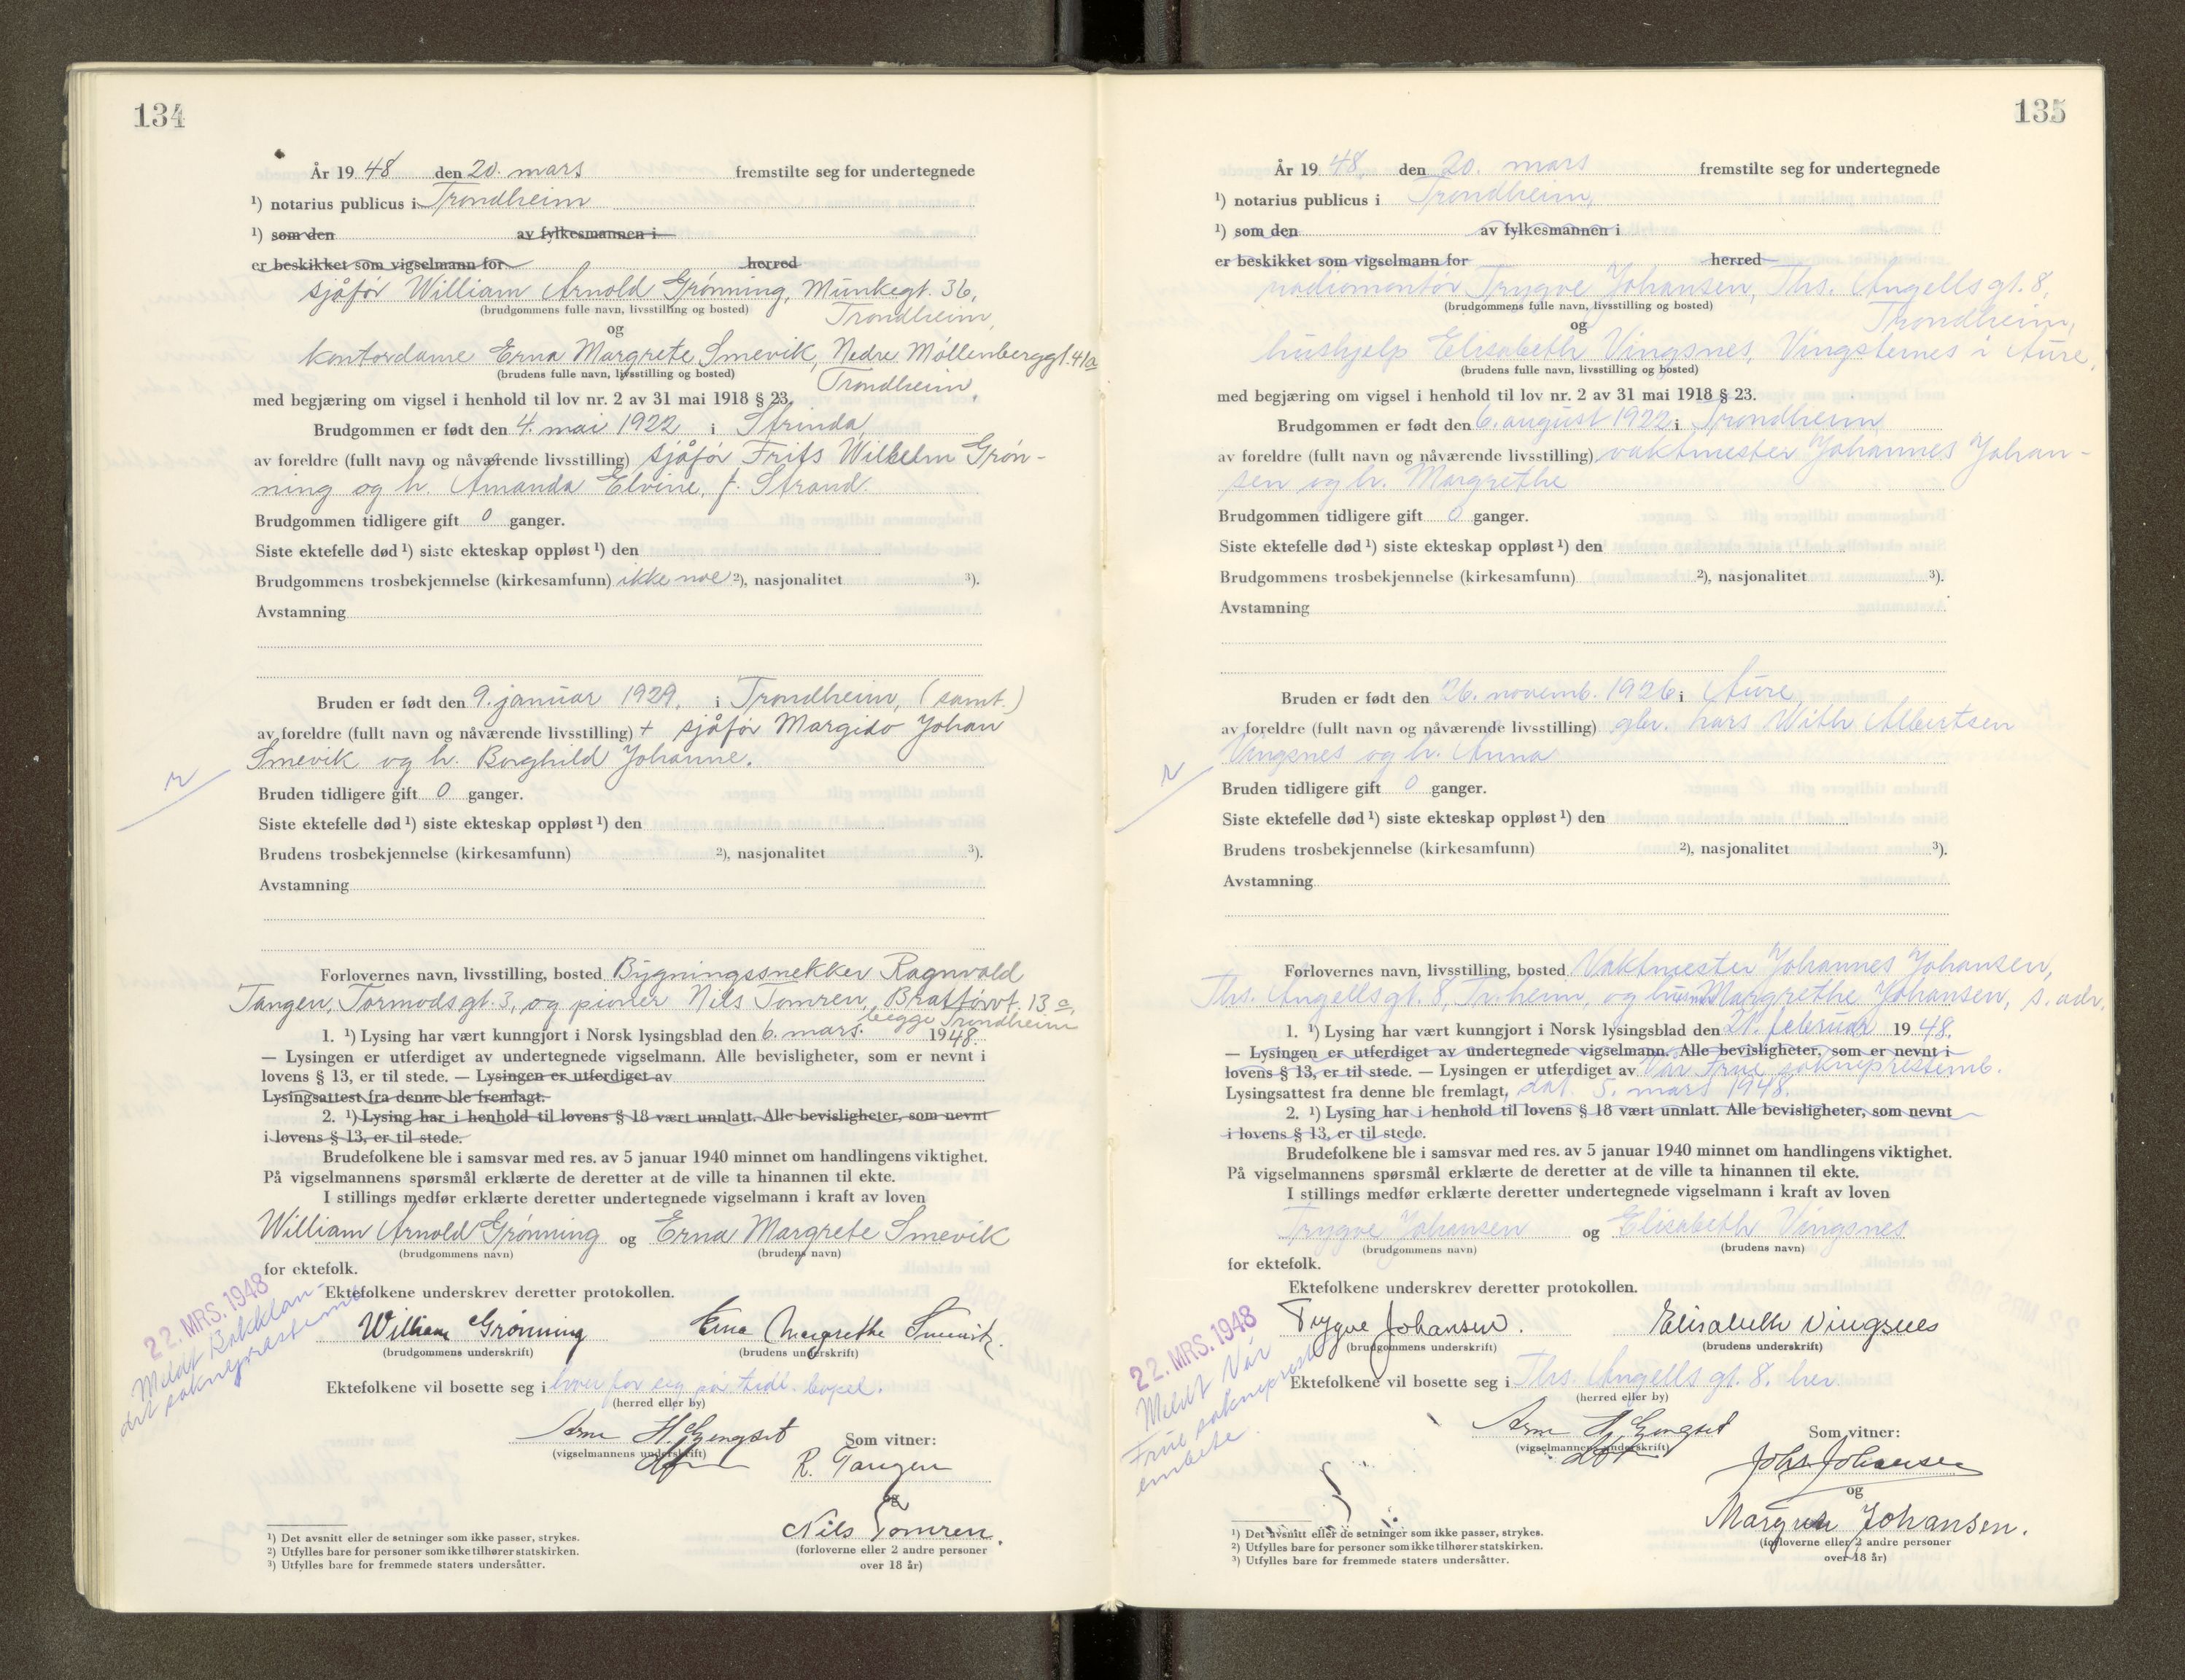 134
År 1948 den 20. mars fremstilte seg for undertegnede
¹) notarius publicus i Trondheim
¹) som den av fylkesmannen i
er beskikket som vigselmann for herred
sjåfør William Arnold Grønning, Munkegt. 36,
(brudgommens fulle navn, livsstilling og bosted) Trondheim,
og
kontordame Erna Margrete Smevik, Nedre Møllenberggt. 41a
(brudens fulle navn, livsstilling og bosted) Trondheim,
med begjæring om vigsel i henhold til lov nr. 2 av 31 mai 1918 § 23.
Brudgommen er født den 4. mai 1922 i Strinda
av foreldre (fullt navn og nåværende livsstilling) sjåfør Frits Wilhelm Grøn-
ning og h. Amanda Elvine, f. Strand.
Brudgommen tidligere gift 0 ganger.
Siste ektefelle død¹) siste ekteskap oppløst¹) den
Brudgommens trosbekjennelse (kirkesamfunn) ikke noe ²), nasjonalitet ³).
Avstamning
Bruden er født den 9. januar 1929. i Trondheim, (samt.)
av foreldre (fullt navn og nåværende livsstilling) + sjåfør Margido Johan
Smevik og h. Borghild Johanne.
Bruden tidligere gift 0 ganger.
Siste ektefelle død¹) siste ekteskap oppløst¹) den
Brudens trosbekjennelse (kirkesamfunn) ²), nasjonalitet ³).
Avstamning
Forlovernes navn, livsstilling, bosted Bygningssnekker Ragnvald
Tangen, Tormodsgt. 3, og pioner Nils Tomren, Brattørvt. 13a,
begge Trondheim
1. ¹) Lysing har vært kunngjort i Norsk lysingsblad den 6. mars 1948.
— Lysingen er utferdiget av undertegnede vigselmann. Alle bevisligheter, som er nevnt i
lovens § 13, er til stede. — Lysingen er utferdiget av
Lysingsattest fra denne ble fremlagt.
2. ¹) Lysing har i henhold til lovens § 18 vært unnlatt. Alle bevisligheter, som nevnt
i lovens § 13, er til stede.
Brudefolkene ble i samsvar med res. av 5 januar 1940 minnet om handlingens viktighet.
På vigselmannens spørsmål erklærte de deretter at de ville ta hinannen til ekte.
I stillings medfør erklærte deretter undertegnede vigselmann i kraft av loven
William Arnold Grønning og Erna Margrete Smevik
(brudgommens navn) (brudens navn)
for ektefolk.
Ektefolkene underskrev deretter protokollen.
22. MRS. 1948
Meldt Bakklan-
det sokneprestemb.
William Grønning Erna Margrethe Smevik.
(brudgommens underskrift) (brudens underskrift)
Ektefolkene vil bosette seg i hver for seg på tidl. bopel.
(herred eller by)
Arne H. Gengset Som vitner:
(vigselmannens underskrift)
R. Tangen
og
Nils Tomren.
(forloverne eller 2 andre personer
over 18 år)
¹) Det avsnitt eller de setninger som ikke passer, strykes.
²) Utfylles bare for personer som ikke tilhører statskirken.
³) Utfylles bare for fremmede staters undersåtter.
135
År 1948, den 20. mars fremstilte seg for undertegnede
¹) notarius publicus i Trondheim,
¹) som den av fylkesmannen i
er beskikket som vigselmann for herred
radiomontør Trygve Johansen, Ths. Angells gt. 8,
(brudgommens fulle navn, livsstilling og bosted) Trondheim,
og
hushjelp Elisabeth Vingsnes, Vingsternes i Aure,
(brudens fulle navn, livsstilling og bosted)
med begjæring om vigsel i henhold til lov nr. 2 av 31 mai 1918 § 23.
Brudgommen er født den 6. august 1922 i Trondheim
av foreldre (fullt navn og nåværende livsstilling) vaktmester Johannes Johan-
sen og h. Margrethe
Brudgommen tidligere gift 0 ganger.
Siste ektefelle død¹) siste ekteskap oppløst¹) den
Brudgommens trosbekjennelse (kirkesamfunn) ²), nasjonalitet ³).
Avstamning
Bruden er født den 26. novemb. 1926 i Aure
av foreldre (fullt navn og nåværende livsstilling) gbr. Lars With Albertsen
Vingsnes og h. Anna
Bruden tidligere gift 0 ganger.
Siste ektefelle død¹) siste ekteskap oppløst¹) den
Brudens trosbekjennelse (kirkesamfunn) ²), nasjonalitet ³).
Avstamning
Forlovernes navn, livsstilling, bosted Vaktmester Johannes Johansen,
Ths. Angells gt. 8, Tr.heim, og husm. Margrethe Johansen, s. adr.
1. ¹) Lysing har vært kunngjort i Norsk lysingsblad den 21. februar 1948.
— Lysingen er utferdiget av undertegnede vigselmann. Alle bevisligheter, som er nevnt i
lovens § 13, er til stede. — Lysingen er utferdiget av Vår Frue sokneprestemb.
Lysingsattest fra denne ble fremlagt, dat. 5. mars 1948.
2. ¹) Lysing har i henhold til lovens § 18 vært unnlatt. Alle bevisligheter, som nevnt
i lovens § 13, er til stede.
Brudefolkene ble i samsvar med res. av 5 januar 1940 minnet om handlingens viktighet.
På vigselmannens spørsmål erklærte de deretter at de ville ta hinannen til ekte.
I stillings medfør erklærte deretter undertegnede vigselmann i kraft av loven
Trygve Johansen og Elisabeth Vingsnes
(brudgommens navn) (brudens navn)
for ektefolk.
Ektefolkene underskrev deretter protokollen.
22. MRS. 1948
Meldt Vår
Frue sokneprest
embete.
Trygve Johansen. Elisabeth Vingsnes
(brudgommens underskrift) (brudens underskrift)
Ektefolkene vil bosette seg i Ths. Angells gt. 8. her
(herred eller by)
Arne H. Gengset Som vitner:
(vigselmannens underskrift)
Johs. Johansen
og
Margrete Johansen.
(forloverne eller 2 andre personer
over 18 år)
¹) Det avsnitt eller de setninger som ikke passer, strykes.
²) Utfylles bare for personer som ikke tilhører statskirken.
³) Utfylles bare for fremmede staters undersåtter.